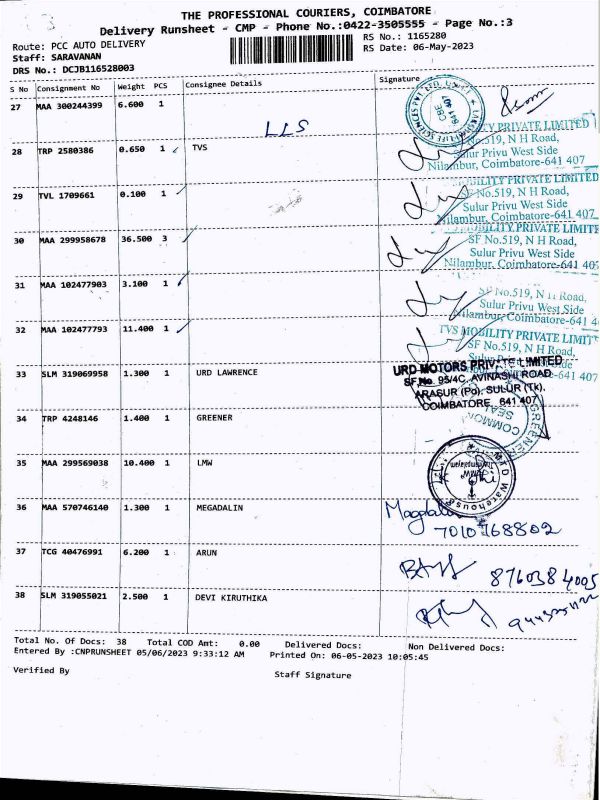 THE PROFESSIONAL COURIERS, COIMBATORE
Delivery Runsheet - CMP - Phone No.:0422-3505555 - Page No.:3
Route: PCC AUTO DELIVERY
RS No.: 1165280
Staff: SARAVANAN
RS Date: 06-May-2023
DRS No.: DCJB116528003
S No Consignment No Weight PCS Consignee Details Signature
27 MAA 300244399 6.600 1
LLS
28 TRP 2580386 0.650 1 TVS
PRIVATE LIMITED
No.519, N H Road,
Sulur Privu West Side
Nilambur, Coimbatore-641 407
29 TVL 1709661 0.100 1
MOBILITY PRIVATE LIMITED
SF No.519, N H Road,
Sulur Privu West Side
Nilambur, Coimbatore-641 407
30 MAA 299958678 36.500 3
MOBILITY PRIVATE LIMITE
SF No.519, N H Road,
Sulur Privu West Side
Nilambur, Coimbatore-641 40
31 MAA 102477903 3.100 1
SF No.519, N H Road,
Sulur Privu West Side
Nilambur, Coimbatore-641 4
32 MAA 102477793 11.400 1
TVS MOBILITY PRIVATE LIMIT
SF No.519, N H Road,
33 SLM 319069958 1.300 1 URD LAWRENCE
URD MOTORS PRIVATE LIMITED
SF No. 95/4C, AVINASHI ROAD
ARASUR (Po), SULUR (Tk),
COIMBATORE, 641 407
34 TRP 4248146 1.400 1 GREENER
COMMON SEAL
GREENER
35 MAA 299569038 10.400 1 LMW
Warehouse
36 MAA 570746140 1.300 1 MEGADALIN
Magdalin
7010768802
37 TCG 40476991 6.200 1 ARUN
8760384005
38 SLM 319055021 2.500 1 DEVI KIRUTHIKA
Total No. Of Docs: 38 Total COD Amt: 0.00 Delivered Docs: Non Delivered Docs:
Entered By :CNPRUNSHEET 05/06/2023 9:33:12 AM Printed On: 06-05-2023 10:05:45
Verified By
Staff Signature